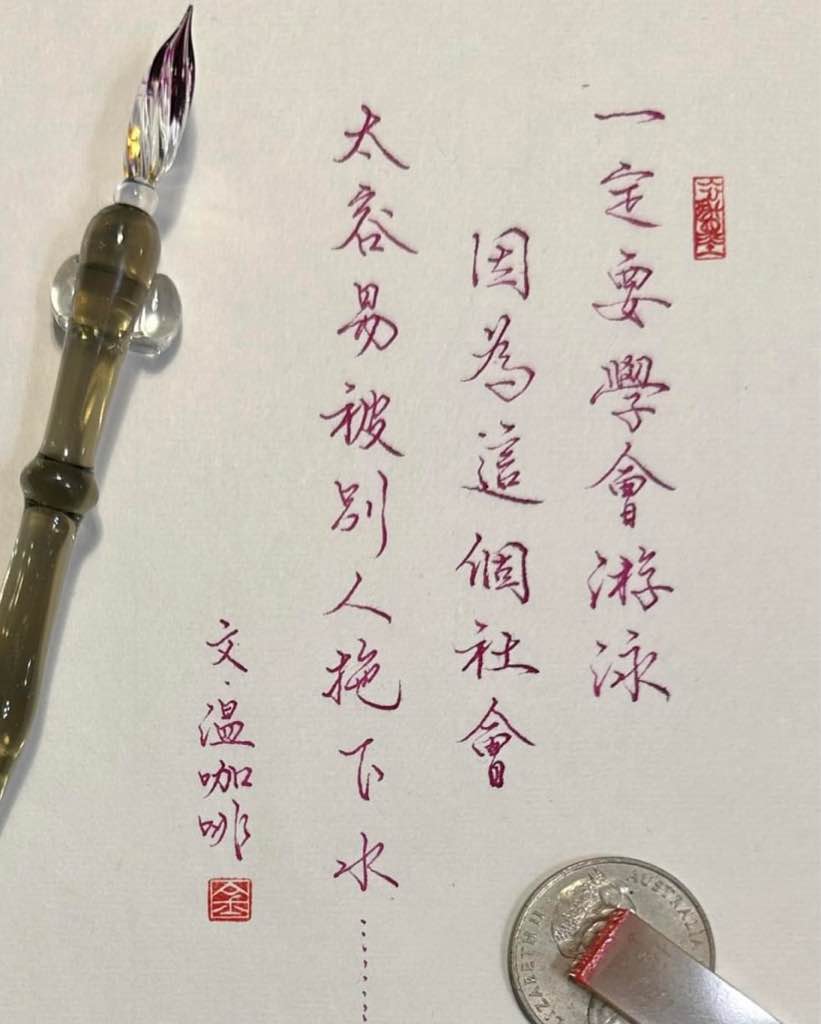 一定要學會游泳
因為這個社會
太容易被別人拖下水⋯⋯
文·溫咖啡
AUSTRALIA
ELIZABETH II